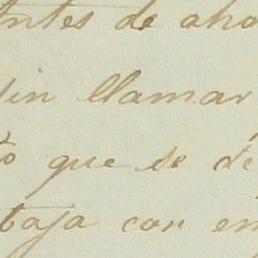 ntes de aho
sin llamar
o que se de
baja con em